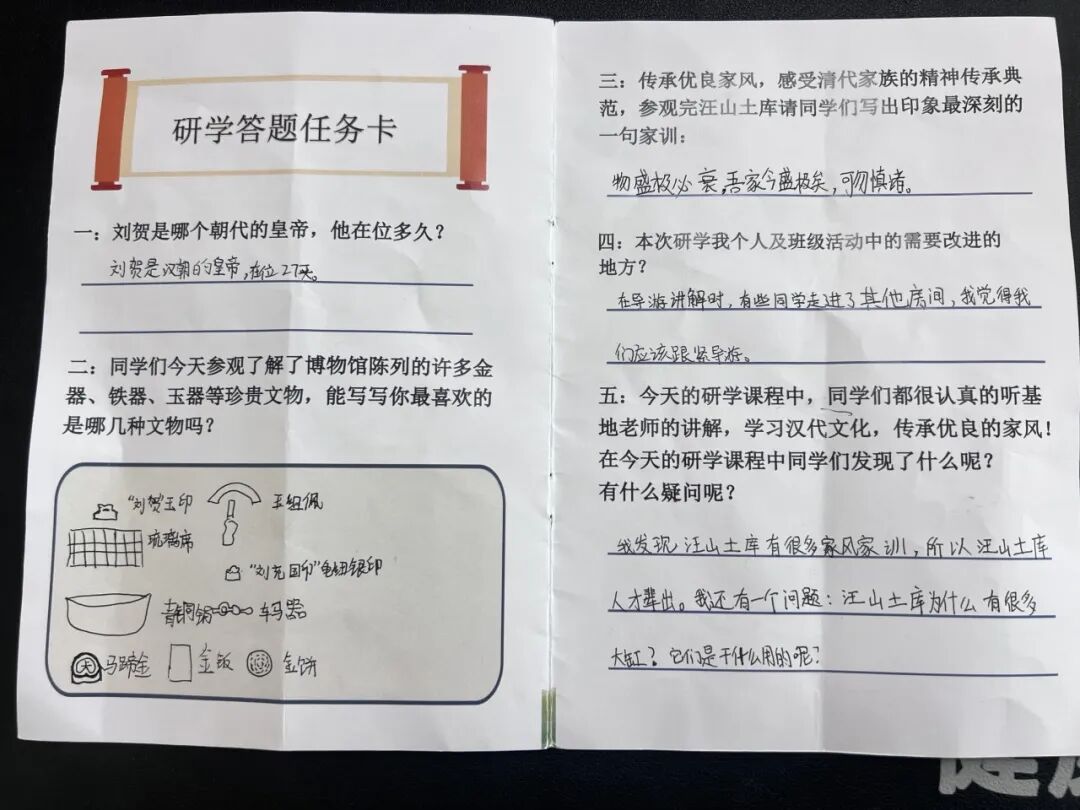 研学答题任务卡
一：刘贺是哪个朝代的皇帝，他在位多久？
刘贺是汉朝的皇帝，在位27天。
二：同学们今天参观了解了博物馆陈列的许多金
器、铁器、玉器等珍贵文物，能写写你最喜欢的
是哪几种文物吗？
“刘贺”玉印 玉组佩
琉璃席
“刘充国印”龟钮银印
青铜锅 车马器
马蹄金 金钣 金饼
三：传承优良家风，感受清代家族的精神传承典
范，参观完汪山土库请同学们写出印象最深刻的
一句家训：
物盛极必衰，吾家今盛极矣，可勿慎诸。
四：本次研学我个人及班级活动中的需要改进的
地方？
在导游讲解时，有些同学走进了其他房间，我觉得我
们应该跟紧导游。
五：今天的研学课程中，同学们都很认真的听基
地老师的讲解，学习汉代文化，传承优良的家风！
在今天的研学课程中同学们发现了什么呢？
有什么疑问呢？
我发现汪山土库有很多家风家训，所以汪山土库
人才辈出。我还有一个问题：汪山土库为什么有很多
大缸？它们是干什么用的呢？